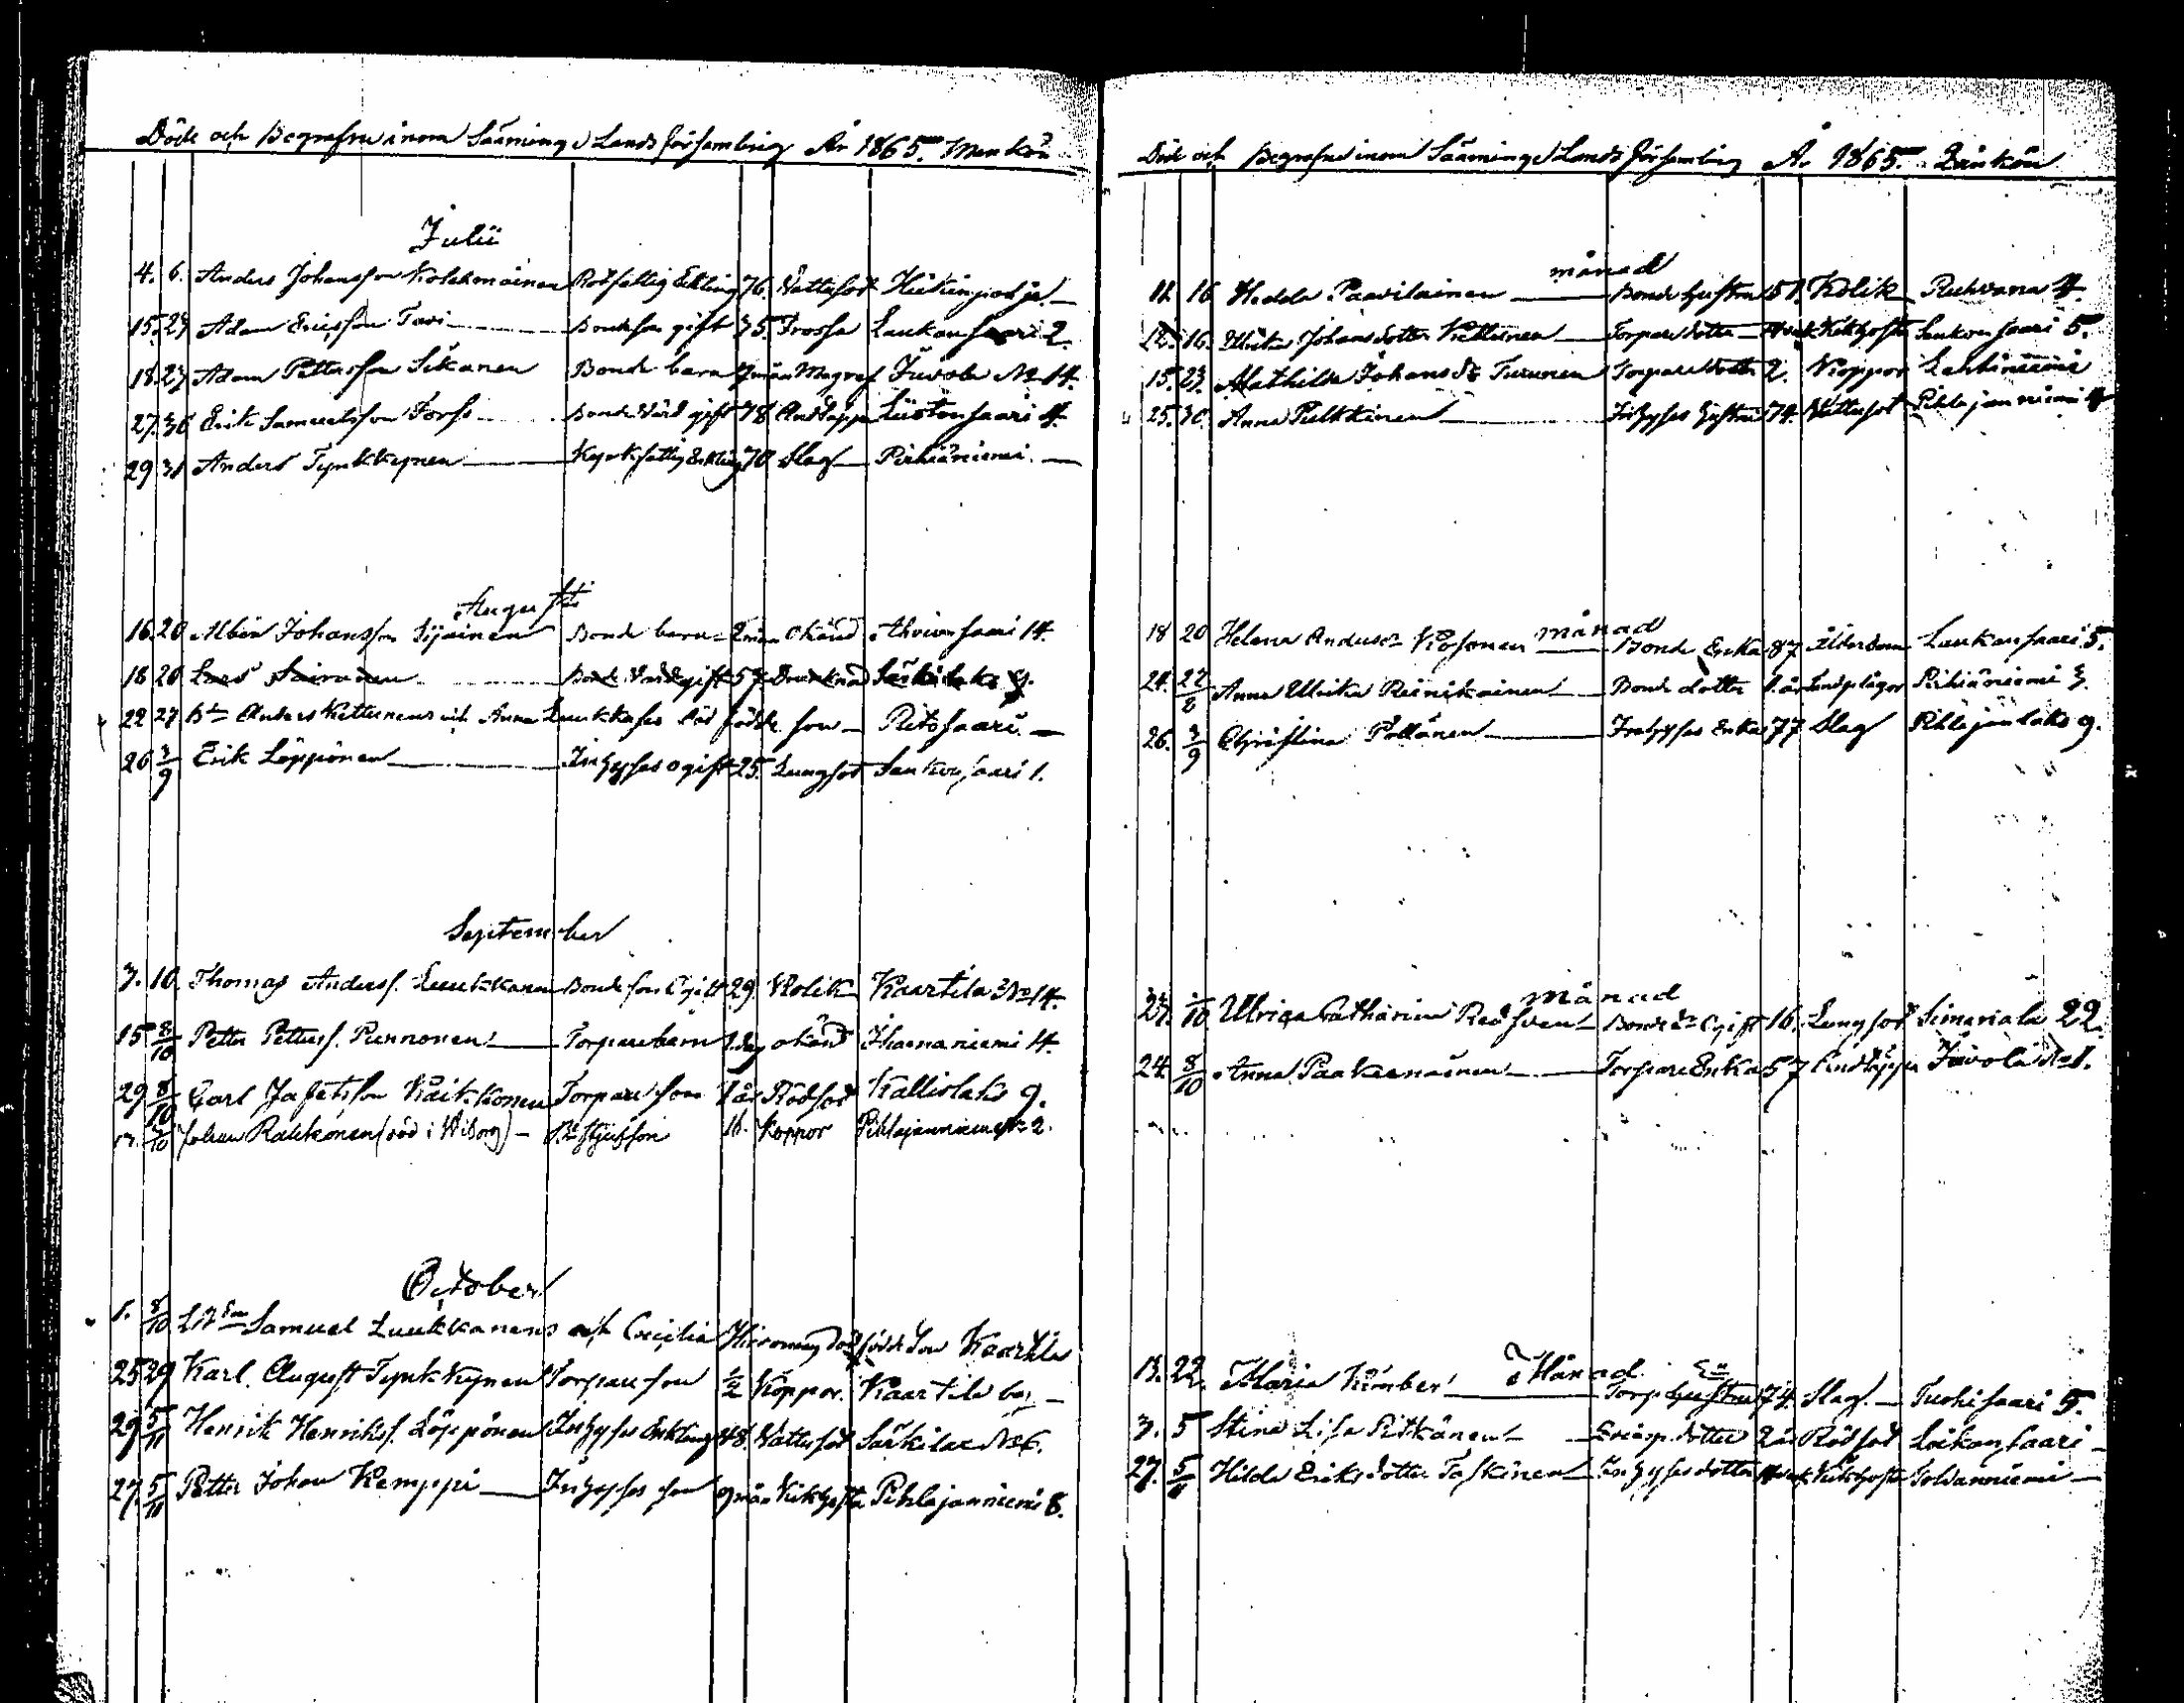 Döde och Begrafne inom Sääminge Lands församling År 1865. Mankön
Julii
4. 6. Anders Johansson Kolehmainen Rotfattig Enkling 76. Vattusot Heikinpohja. —
15. 23 Adam Ericsson Tavi Bondeson gift 35. Frossa Laukansaari 2.
18. 23 Adam Pettersson Sikanen Bonde barn Juvola No 14.
27. 30 Erik Samuelsson Bonde Värd gift 78 Andtäppa Liistonsaari 4.
29 31 Anders Tynkkynen Kyrkfattig Enkling 70 Slag Pirhiäniemi. —
Augusti
16 20 Albin Johansson Sijainen Bonde barn 2 mån okänd Ahvionsaari 14.
18 20 Lars Bonde Värd gift 57 Drunknad Särkilaks 9.
22 27 Anders Kettunens och Anna Luukkases död födde son — Pitosaari. —
26 3/9 Erik Löppönen Inhyses ogift 25. Lungsot Laukansaari 1.
September
3. 10. Thomas Anderss. Luukkanen Bonde son Ogift 29. Kolik Kaartila No 14.
15 8/10 Petter Petterss. Punnonen Torpare barn 1. dag okänd Haonaniemi 14.
29 8/10 Carl Torpare son 1 år Rödsot Kallislaks 9.
8/10 Johan Rakkonen (död i Wiborg) — 16. Koppor Pihlajanniemi No 2.
October
1. 8/10 Samuel Luukkanens och Cecilia död födde son Kaartila
25 29 Karl August Tynkkynen Torpare son 1/2 Koppor. Kaartila by —
29 5/11 Henrik Henrikss. Löppönen Inhyses Enkling 48. Vattusot Särkilax No 6.
27. 5/11 Petter Johan Kemppi Inhyses son 9 mån Kikhosta Pihlajanniemi 8.
Döde och Begrafne inom Sääminge Lands församling År 1865. Qvinkön
månad
11. 16 Hedda Paavilainen Bonde hustru 51. Kolik Ruhvana 4.
12. 16. Ulrika Johansdotter Torpare dotter Kikhosta Laukansaari 5.
15. 23. Mathilda Johansdr Turunen Torpare dotter 2. Koppor Lahtiniemi
25. 30. Anna Pulkkinen Inhyses hustru 74. Vattusot Pihlajanniemi 4
månad
18 20 Helena Andersdr Kosonen Bonde Enka 87 Ålderdom Laukansaari 5.
24. Anna Ulrika Reinikainen Bonde dotter 1. år Tandplågor Pihiäniemi 3.
26. 3/9 Christina Pöllänen Inhyses Enka 77 Slag Pihlajanlaks 9.
månad
23. 1/10 Ulrica Catharina Bonde dr Ogift 16. Lungsot Simanala 22.
24. 8/10 Anna Paakkunainen Torpare Enka 57 Andtäppa Juvola No 1.
Månad
13. 22. Maria Kimber Torp hustru Ea 74. Slag. — Tuohisaari 5.
3. 5 Stina Lisa Pitkänen dotter 2 år Rödsot Loikansaari —
27. 5/11 Hilda Eriksdotter Taskinen Inhyses dotter Kikhosta Tolvanniemi —